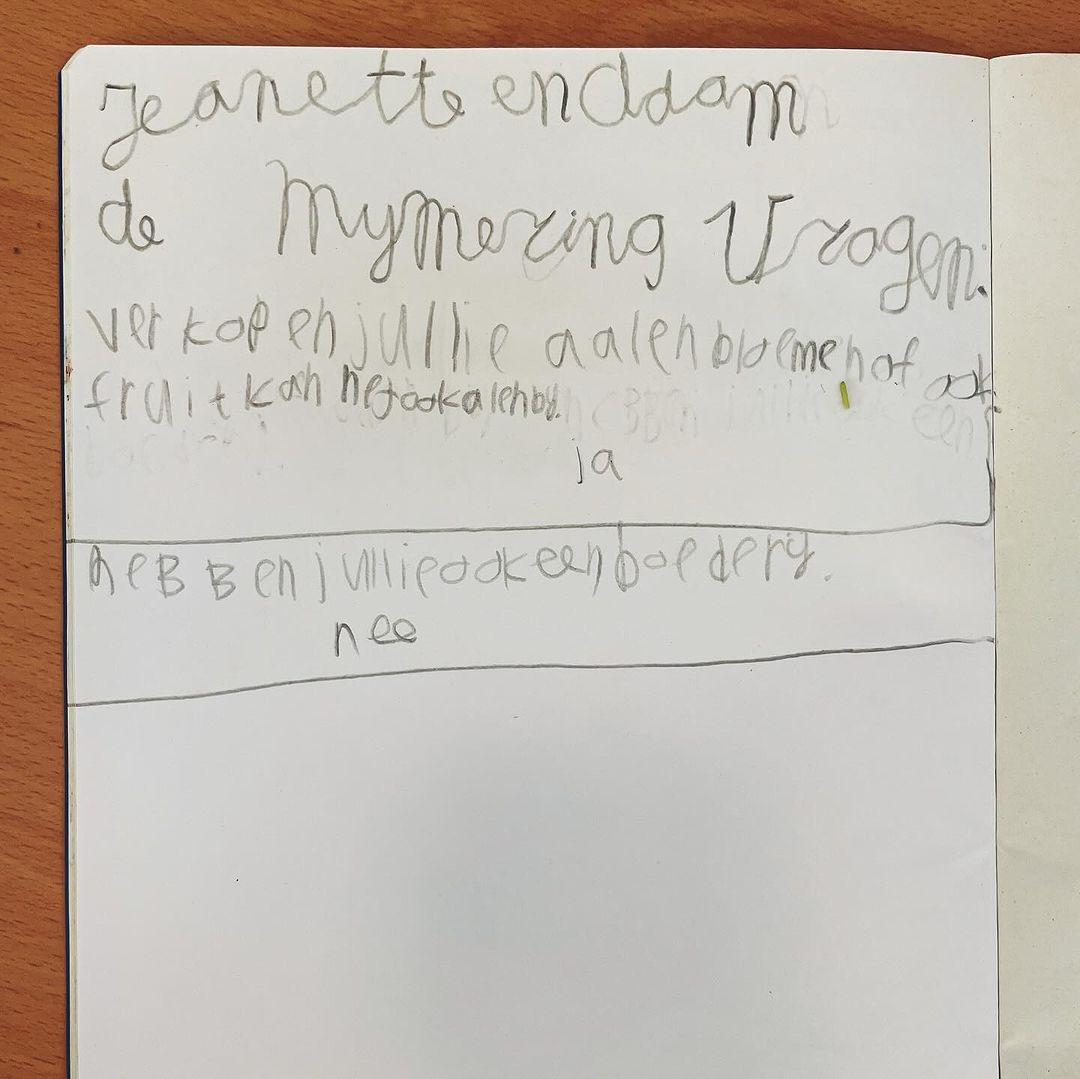 Jeanette en ddam
de Mymering Vragen.
verkopen jullie aalen bloeme hof ook
fruit kan het ook alen by.
ja
heBBen jullie ook een boedery.
nee